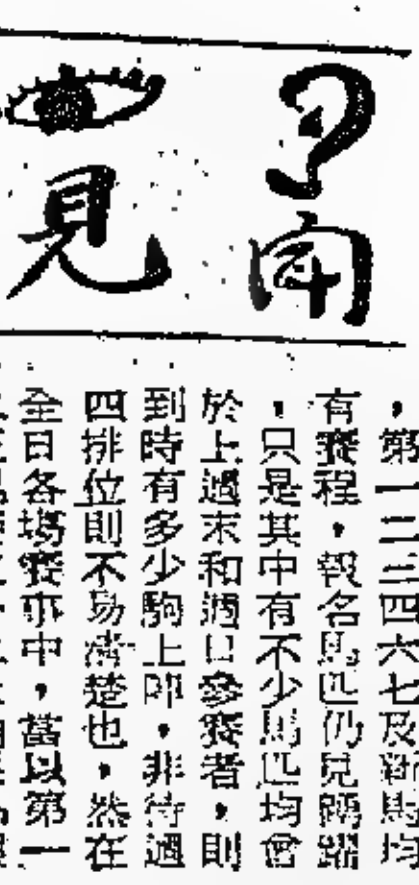 耳聞
見
，第一二三四六七及新馬均
有賽程，報名馬匹仍見踴躍
，只是其中有不少馬匹均會
於上週末和週日參賽者，則
到時有多少駒上陣，非待週
四排位則不易清楚也，然在
全日各場賽事中，當以第一